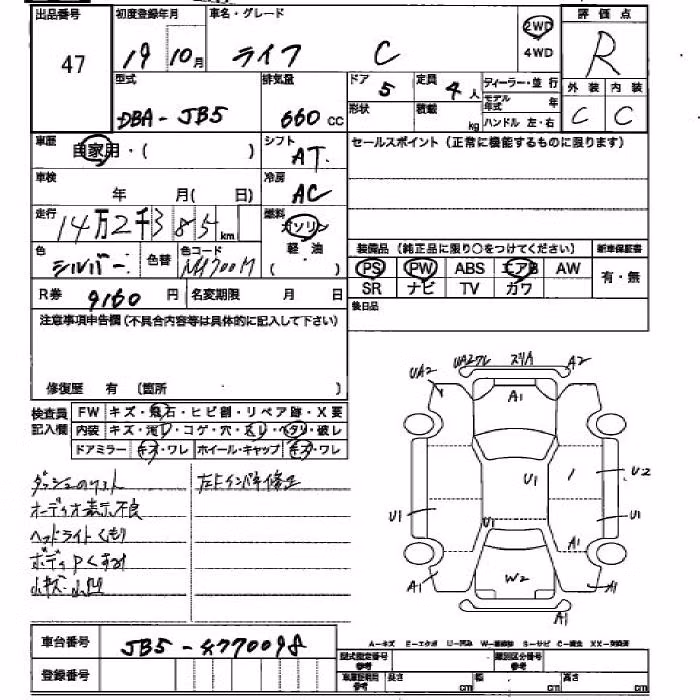 出品番号 初度登録年月 車名・グレード 2WD 評価点
47 19 10月 ライフ C 4WD R
型式 排気量 ドア 5 定員 4人 ディーラー・並行 外装 内装
DBA-JB5 660cc 形状 積載 kg モデル年式 C C
ハンドル 左・右
車歴 自家用・( ) シフト AT セールスポイント (正常に機能するものに限ります)
車検 年 月( 日) 冷房 AC
走行 14万2千385km 燃料 ガソリン 軽・油 ( )
色 シルバー 色替 色コード NH700M 装備品 (純正品に限り○をつけてください) 新車保証書
PS PW ABS エアB AW 有・無
R券 9160円 名変期限 月 日 SR ナビ TV カワ
後日品
注意事項申告欄(不具合内容等は具体的に記入して下さい)
修復歴 有 (箇所 )
UA2 UA2ワレ スリA A2
A1
検査員記入欄 FW キズ・飛石・ヒビ割・リペア跡・X要
内装 キズ・汚レ・コゲ・穴・スレ・ヘタリ・破レ
ドアミラー キズ・ワレ ホイール・キャップ キズ・ワレ
U1 U2
U1 U1 U1
オーディオ表示不良
ヘッドライトくもり
A1
W2
小キズ・小凹 A1 A1
A1
車台番号 JB5-
A-キズ E-エクボ U-凹み
登録番号 型式指定番号 参考 類別区分番号 参考
車庫証明用 参考 長さ cm 幅 cm 高さ cm